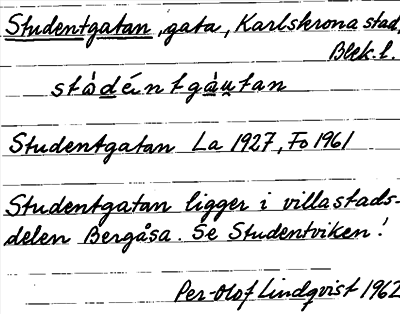 Studentgatan, gata, Karlskrona stad,
Blek. l.
stàdéntgàutan
Studentgatan La 1927, Fo 1961
Studentgatan ligger i villastads-
delen Bergåsa. Se Studentviken!
Per-Olof Lindqvist 1962